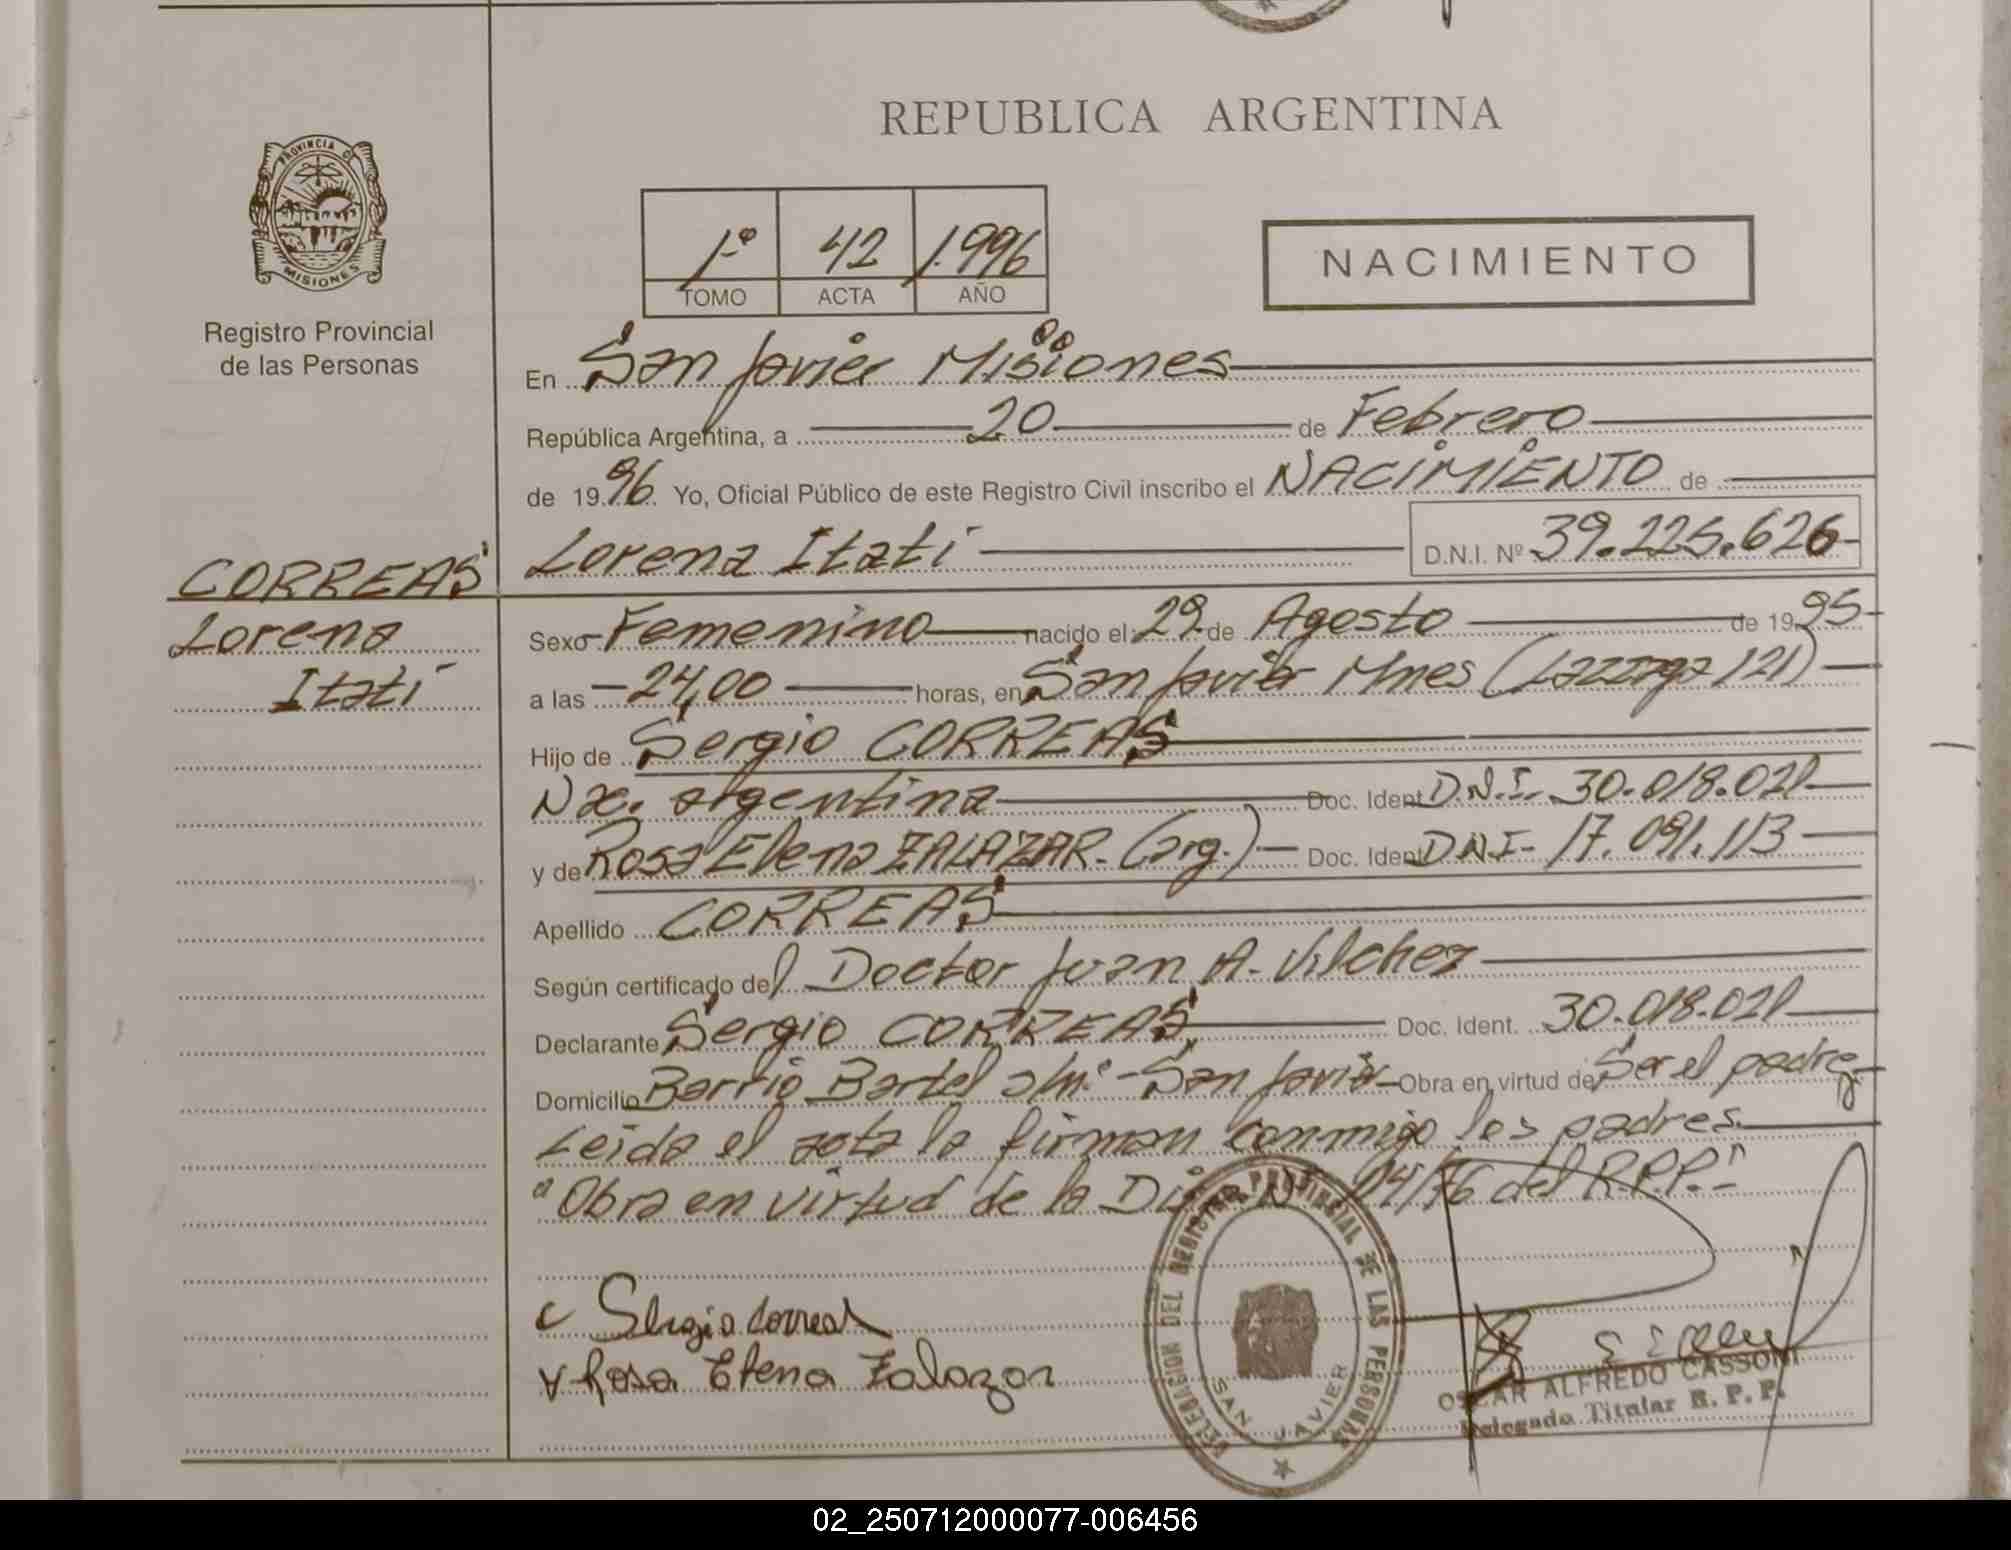 REPUBLICA ARGENTINA
PROVINCIA DE
MISIONES
Registro Provincial
de las Personas
1º 42 1.996
TOMO ACTA AÑO
NACIMIENTO
En San Javier Misiones
República Argentina, a 20 de Febrero
de 1996 Yo, Oficial Público de este Registro Civil inscribo el NACIMIENTO de
CORREAS
Lorena Itatí D.N.I. Nº 39.225.626
Lorena
Itatí
Sexo Femenino nacido el 29 de Agosto de 1995
a las 24,00 horas, en San Javier Mnes (Lazzaga 121)
Hijo de Sergio CORREAS
Nac. argentina Doc. Ident. D.N.I. 30.018.021
y de Rosa Elena ZALAZAR. (arg.) Doc. Ident. DNI- 17.091.113
Apellido CORREAS
Según certificado del Doctor Juan A. Vilchez
Declarante Sergio CORREAS, Doc. Ident. 30.018.021
Domicilio Barrio Bartel s/nº - San Javier Obra en virtud de Ser el padre
Leida el acta la firman conmigo los padres
"Obra en virtud de la Disp. Nº 24/76 del R.P.P."
Sergio Correas
Rosa Elena Zalazar
DELEGACION DEL REGISTRO PROVINCIAL DE LAS PERSONAS
SAN JAVIER
OSCAR ALFREDO CASSONI
Delegado Titular R. P. P.
02_250712000077-006456